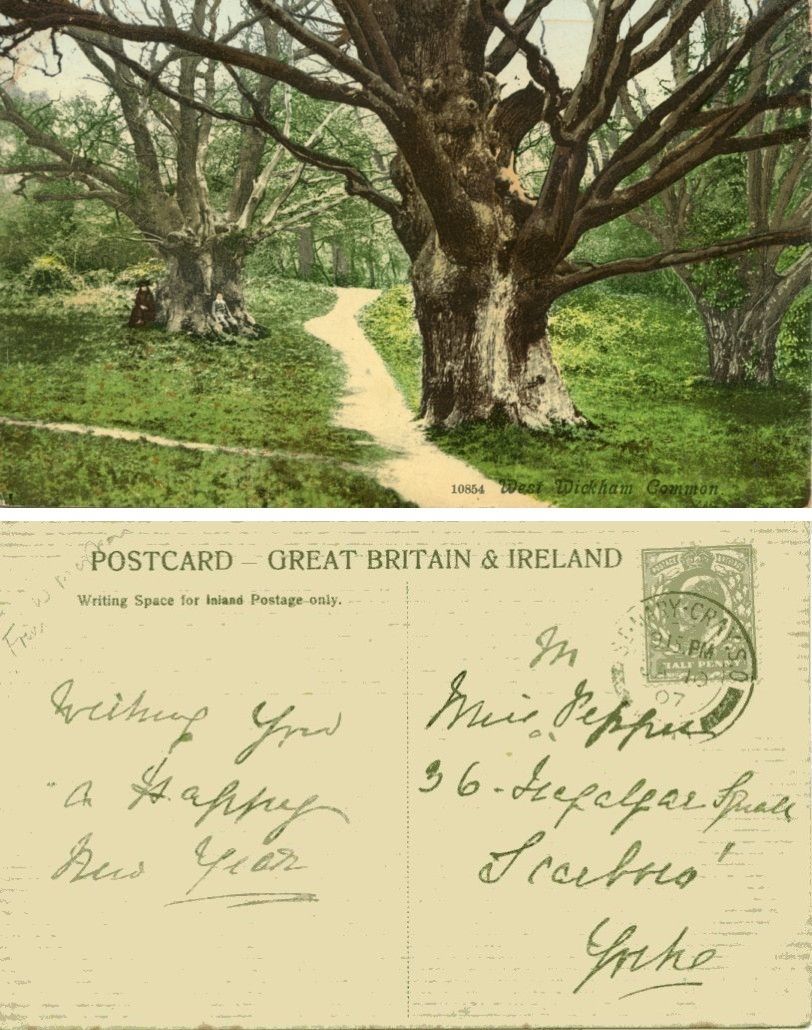 10854 West Wickham Common
POSTCARD – GREAT BRITAIN & IRELAND
Writing Space for Inland Postage only.
From
ST MARY-CRAY·S.O
915 PM
10
07
HALF PENNY
Wishing You
a Happy
New Year
M
Miss Pepper
36 - Trafalgar Square
Scarboro'
Yorks